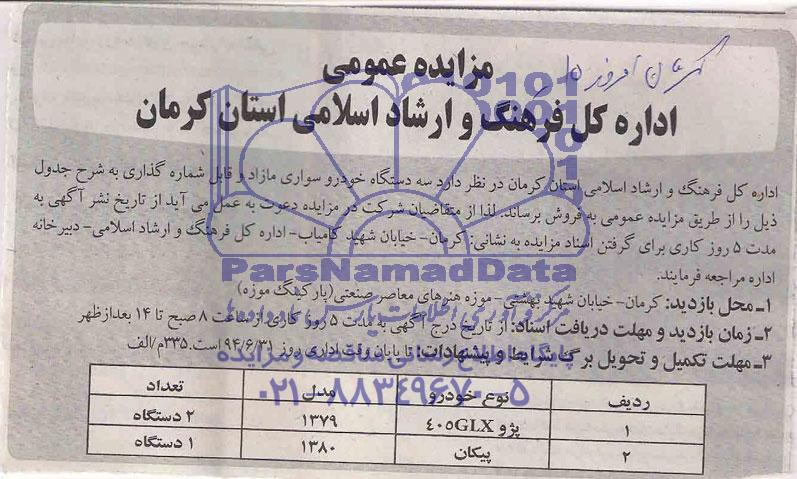 کرمان امروز
مزایده عمومی
اداره کل فرهنگ و ارشاد اسلامی استان کرمان
اداره کل فرهنگ و ارشاد اسلامی استان کرمان در نظر دارد سه دستگاه خودرو سواری مازاد و قابل شماره گذاری به شرح جدول
ذیل را از طریق مزایده عمومی به فروش برساند. لذا از متقاضیان شرکت در مزایده دعوت به عمل می آید از تاریخ نشر آگهی به
مدت ۵ روز کاری برای گرفتن اسناد مزایده به نشانی: کرمان- خیابان شهید کامیاب- اداره کل فرهنگ و ارشاد اسلامی- دبیرخانه
اداره مراجعه فرمایند.
ParsNamadData
۱ـ محل بازدید: کرمان- خیابان شهید بهشتی- موزه هنرهای معاصر صنعتی(پارکینگ موزه)
۲ـ زمان بازدید و مهلت دریافت اسناد: از تاریخ درج آگهی به مدت ۵ روز کاری از ساعت ۸ صبح تا ۱۴ بعدازظهر
۳ـ مهلت تکمیل و تحویل برگ شرایط و پیشنهادات: تا پایان وقت اداری روز ۹۴/۶/۳۱ است.۳۳۵م/الف
پایگاه اطلاع رسانی مناقصه و مزایده
۰۲۱-۸۸۳۴۹۶۷۰-۵
ردیف نوع خودرو مدل تعداد
۱ پژو ۴۰۵GLX ۱۳۷۹ ۲ دستگاه
۲ پیکان ۱۳۸۰ ۱ دستگاه